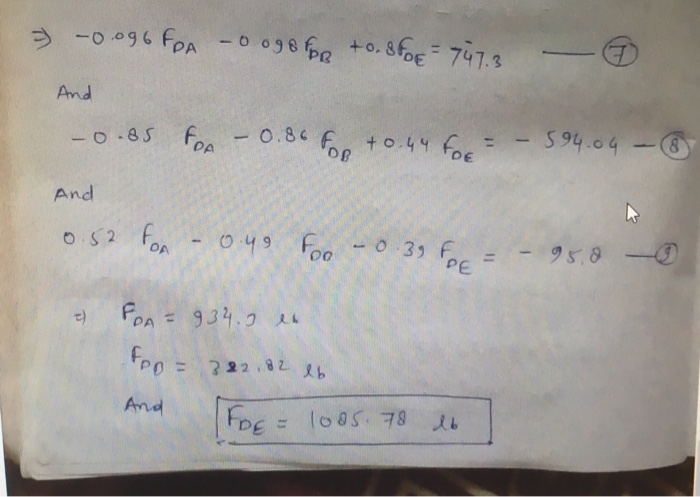 ⇒ -0.096 F_DA -0.098 F_DB +0.8 F_DE = 747.3 — ⑦
And
-0.85 F_DA - 0.86 F_DB +0.44 F_DE = - 594.04 — ⑧
And
0.52 F_DA - 0.49 F_DB - 0.39 F_DE = - 95.8 — ⑨
⇒ F_DA = 934.9 lb
F_DB = 322.82 lb
And F_DE = 1085.78 lb